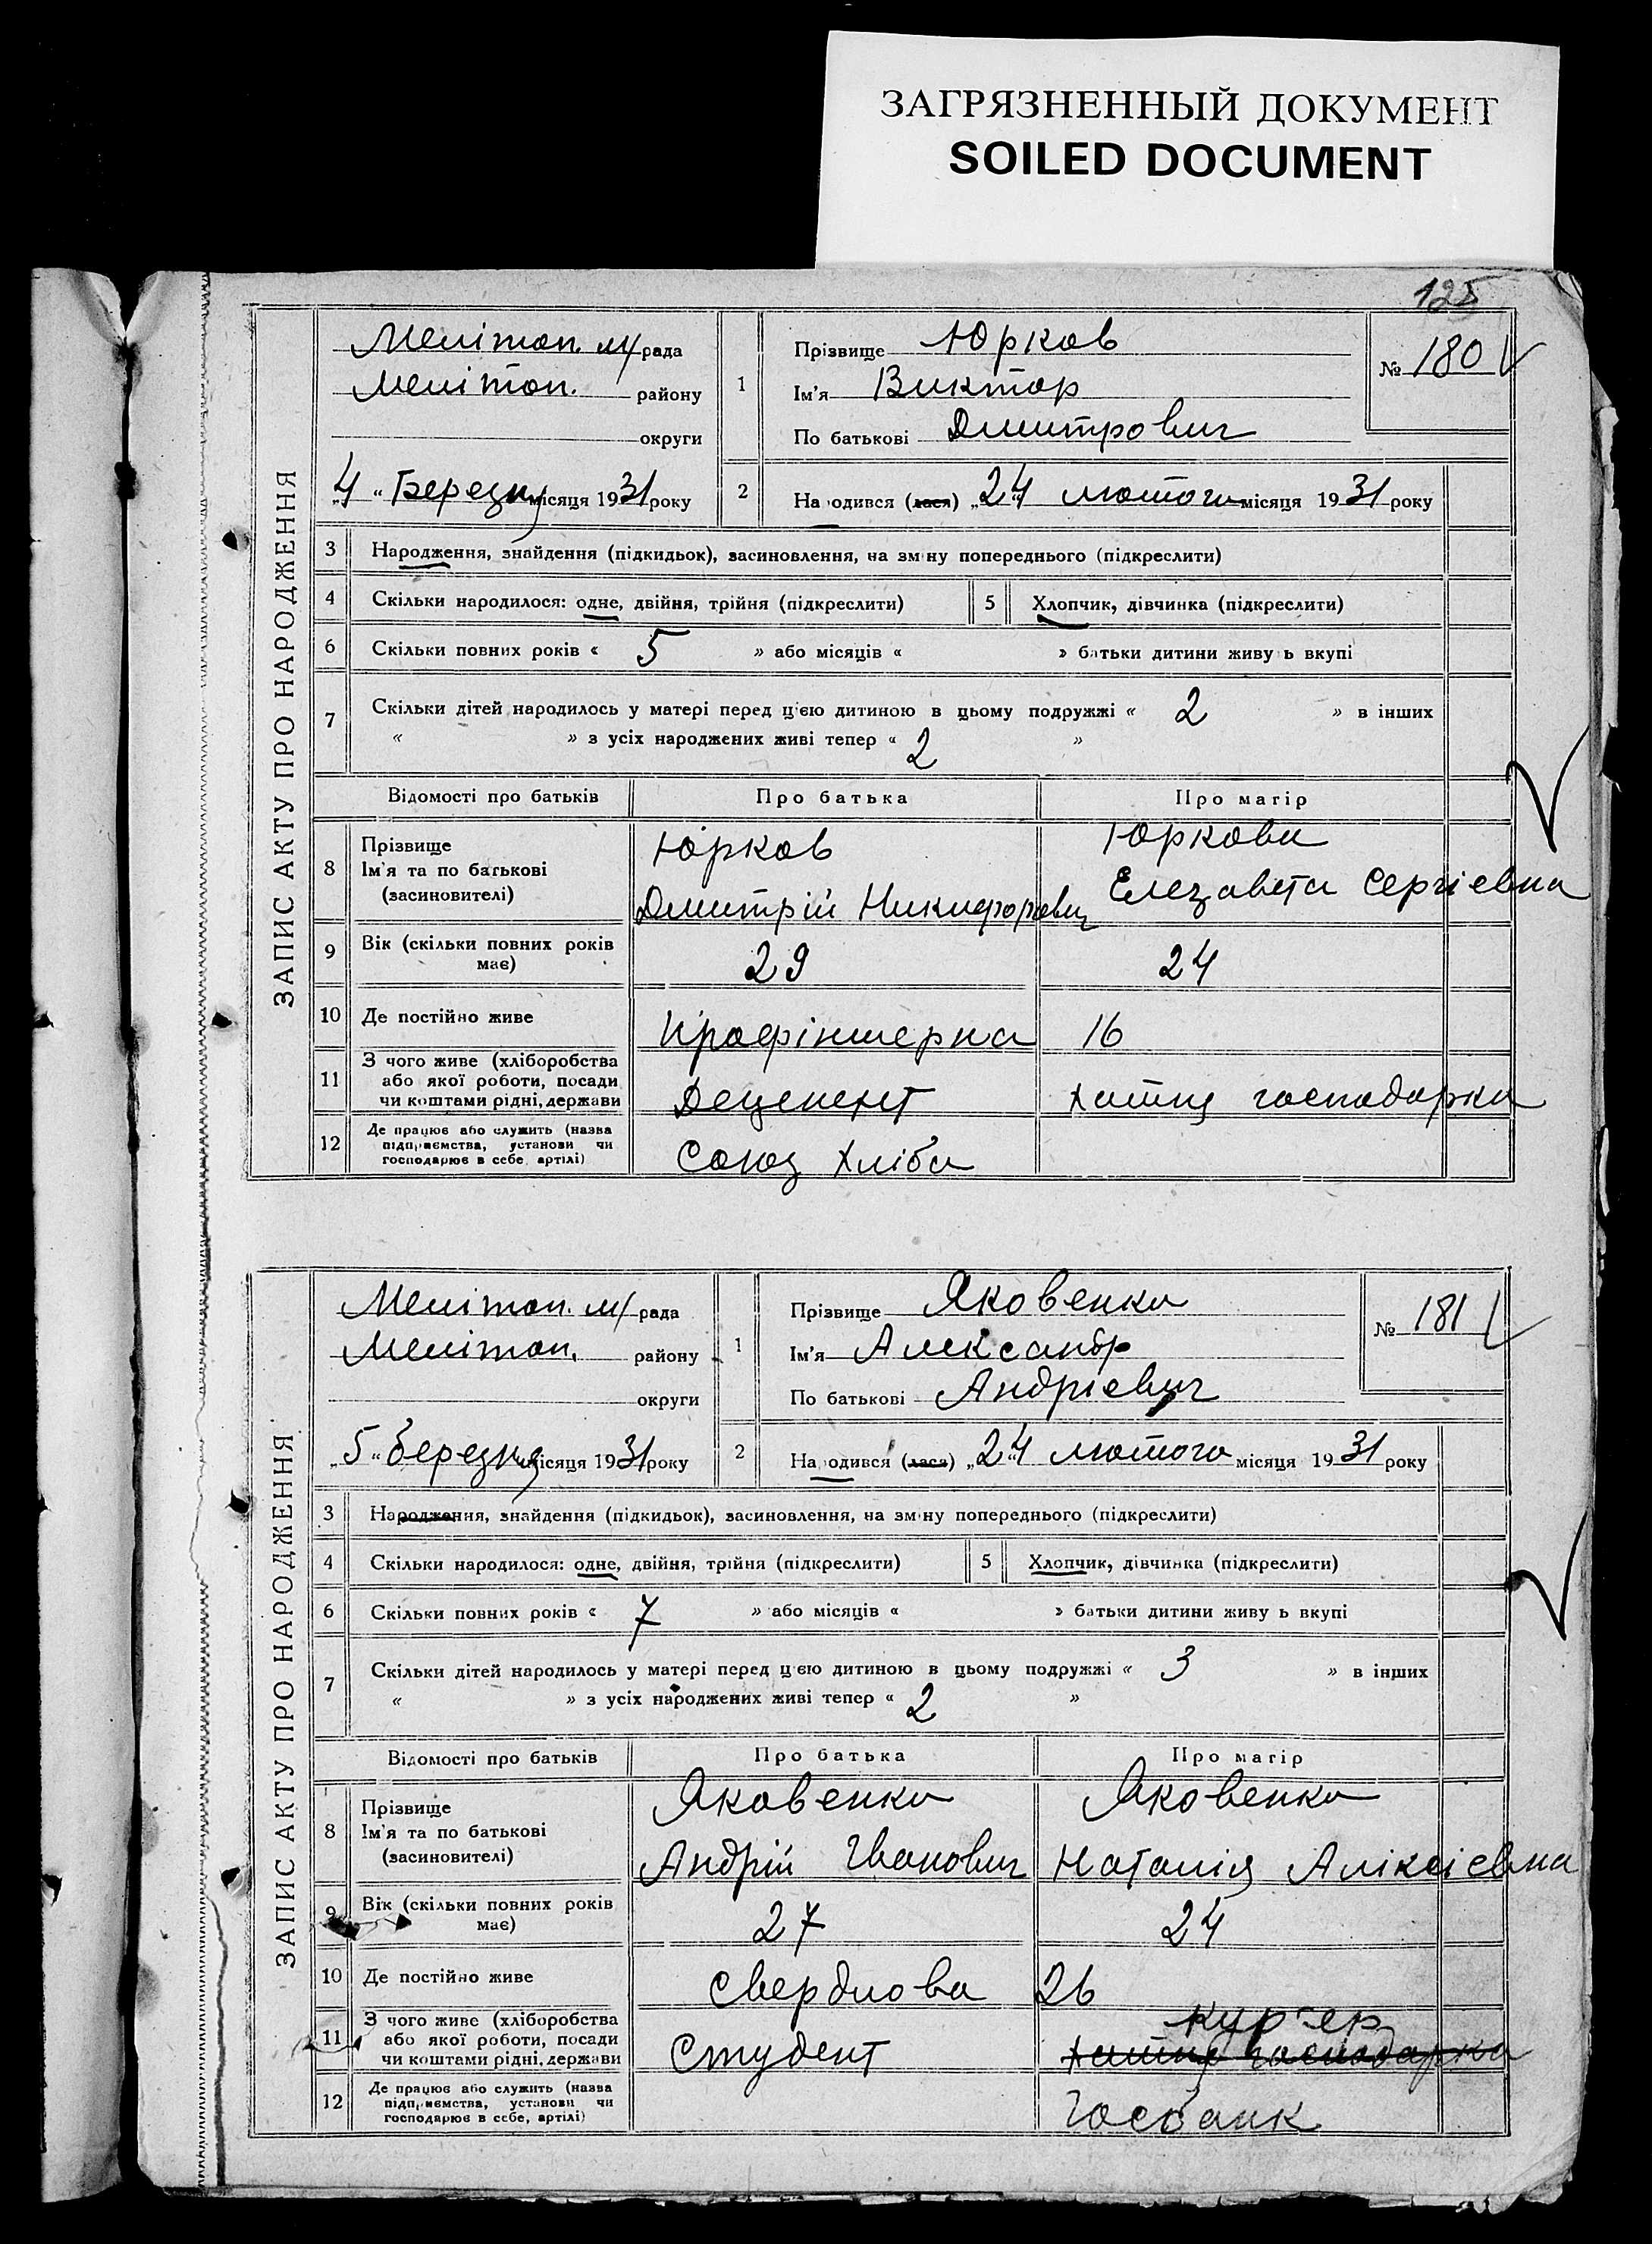 ЗАГРЯЗНЕННЫЙ ДОКУМЕНТ
SOILED DOCUMENT
125
ЗАПИС АКТУ ПРО НАРОДЖЕННЯ
Мелітоп. м/рада
Мелітоп. району
округи
„4“ Березня місяця 1931 року
1
Прізвище Юрков
Ім'я Виктор
По батькові Дмитрович
№ 180
2
На одився (лася) „24“ лютого місяця 1931 року
3 Народження, знайдення (підкидьок), засиновлення, на зм ну попереднього (підкреслити)
4 Скільки народилося: одне, двійня, трійня (підкреслити) 5 Хлопчик, дівчинка (підкреслити)
6 Скільки повних років « 5 » або місяців « » батьки дитини живу ь вкупі
7 Скільки дітей народилось у матері перед цією дитиною в цьому подружжі « 2 » в інших
« » з усіх народжених живі тепер « 2 »
Відомості про батьків Про батька Про матір
8 Прізвище
Ім'я та по батькові
(засиновителі)
Юрков
Дмитрій Никифорович
Юркова
Елезавета Сергіевна
9 Вік (скільки повних років має) 29 24
10 Де постійно живе Профінтерна 16
11 З чого живе (хліборобства
або якої роботи, посади
чи коштами рідні, держави
Деценент Хатня господарка
12 Де працює або служить (назва
підприємства, установи чи
господарює в себе, артілі)
Союз Хліба
ЗАПИС АКТУ ПРО НАРОДЖЕННЯ
Мелітоп. м/рада
Мелітоп. району
округи
„5“ березня місяця 1931 року
1
Прізвище Яковенко
Ім'я Александр
По батькові Андріевич
№ 181
2
На одився (лася) „24“ лютого місяця 1931 року
3 Народження, знайдення (підкидьок), засиновлення, на зм ну попереднього (підкреслити)
4 Скільки народилося: одне, двійня, трійня (підкреслити) 5 Хлопчик, дівчинка (підкреслити)
6 Скільки повних років « 7 » або місяців « » батьки дитини живу ь вкупі
7 Скільки дітей народилось у матері перед цією дитиною в цьому подружжі « 3 » в інших
« » з усіх народжених живі тепер « 2 »
Відомості про батьків Про батька Про матір
8 Прізвище
Ім'я та по батькові
(засиновителі)
Яковенко
Андрій Іванович
Яковенко
Наталія Аліксіевна
9 Вік (скільки повних років має) 27 24
10 Де постійно живе Свердлова 26
11 З чого живе (хліборобства
або якої роботи, посади
чи коштами рідні, держави
Студент
кур'ер
Хатня господарка
12 Де працює або служить (назва
підприємства, установи чи
господарює в себе, артілі)
Госбанк